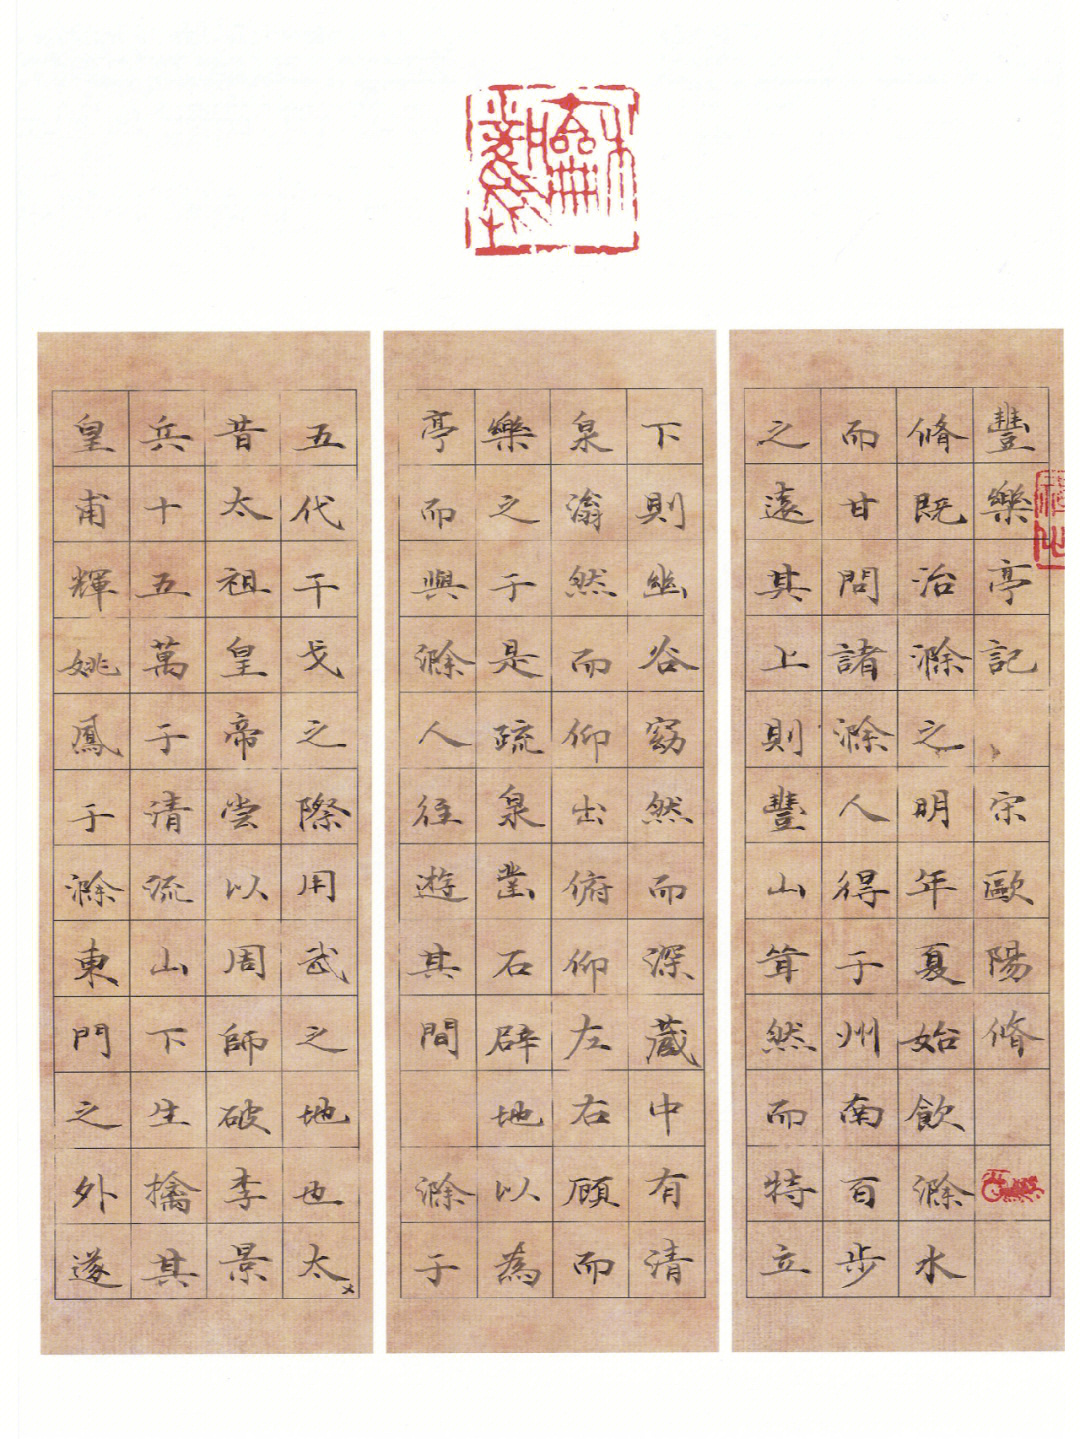 豐樂亭記、宋歐陽脩
脩既治滁之明年夏始飲滁水
而甘問諸滁人得于州南百步
之遠其上則豐山聳然而特立
下則幽谷窈然而深藏中有清
泉滃然而仰出俯仰左右顧而
樂之于是疏泉鑿石辟地以為
亭而與滁人往遊其間 滁于
五代干戈之際用武之地也太
昔太祖皇帝嘗以周師破李景
兵十五萬于清流山下生擒其
皇甫輝姚鳳于滁東門之外遂